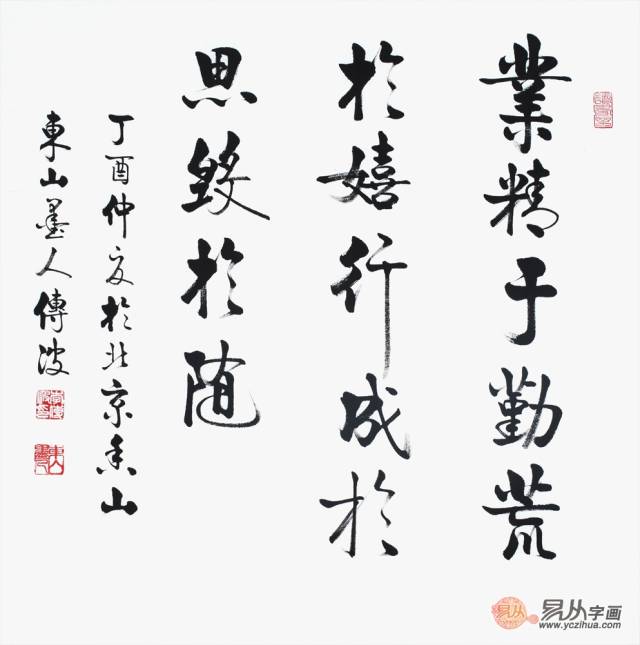 業精于勤荒
於嬉行成於
思毀於随
丁酉仲夏於北京香山
東山墨人傳波
易从
易从字画
www.yczihua.com